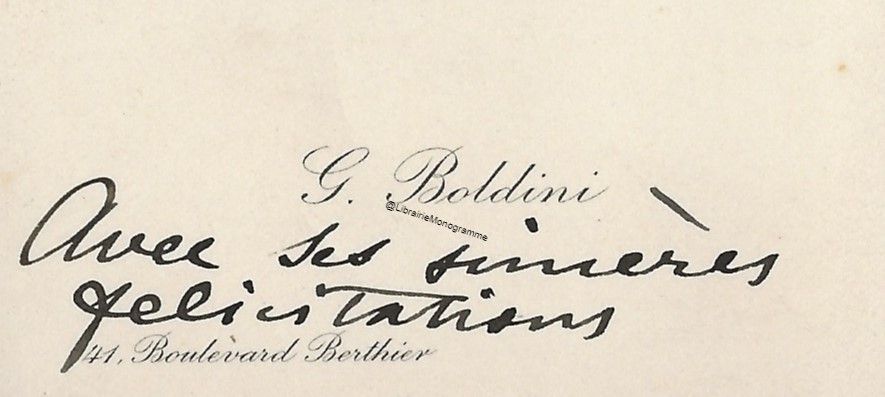 G. Boldini
@LibrairieMonogramme
Avec ses sincères
felicitations
41, Boulevard Berthier